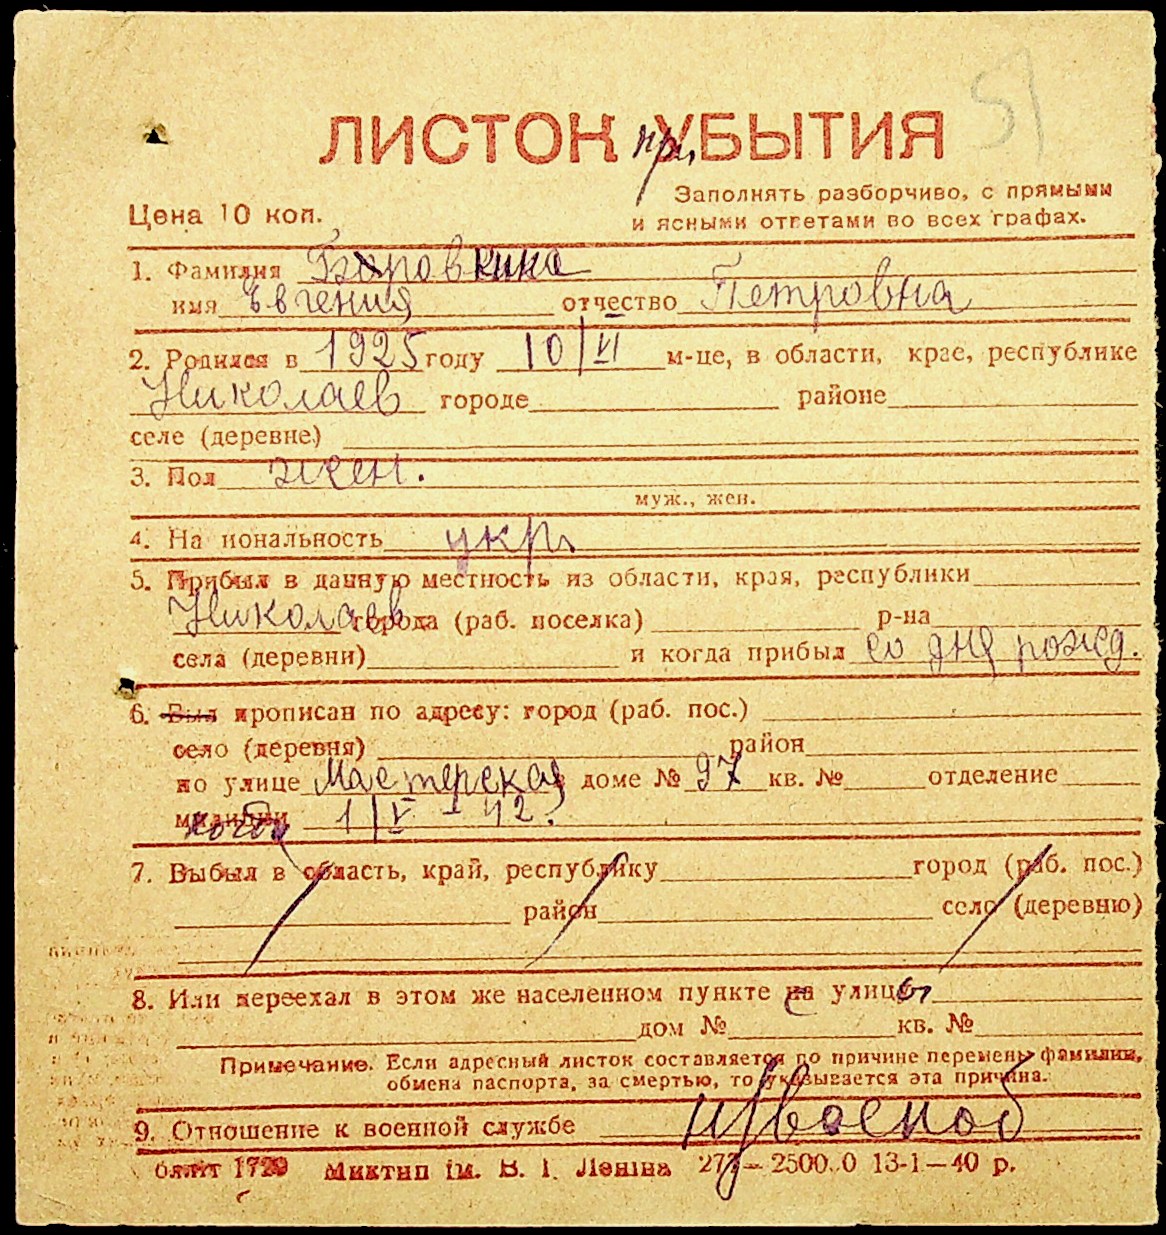 ЛИСТОК при УБЫТИЯ
Заполнять разборчиво, с прямыми
Цена 10 коп.
и ясными ответами во всех графах.
1. Фамилия Боровкина
имя Евгения отчество Петровна
2. Родился в 1925 году 10/VI м-це, в области, крае, республике
Николаев городе районе
селе (деревне)
3. Пол жен.
муж., жен.
4. На иональность укр.
5. Прибыл в данную местность из области, края, республики
Николаев города (раб. поселка) р-на
села (деревни) и когда прибыл со дня рожд.
6. Был прописан по адресу: город (раб. пос.)
село (деревня) район
по улице Мастерская доме № 97 кв. № отделение
милиции когда 1/V - 42.
7. Выбыл в область, край, республику город (раб. пос.)
район село (деревню)
8. Или переехал в этом же населенном пункте с улицы
дом № кв. №
Примечание. Если адресный листок составляется по причине перемены фамилии,
обмена паспорта, за смертью, то указывается эта причина.
9. Отношение к военной службе н/военноб
Облліт 1729 Миктип ім. В. І. Леніна 277—2500.0 13-1—40 р.